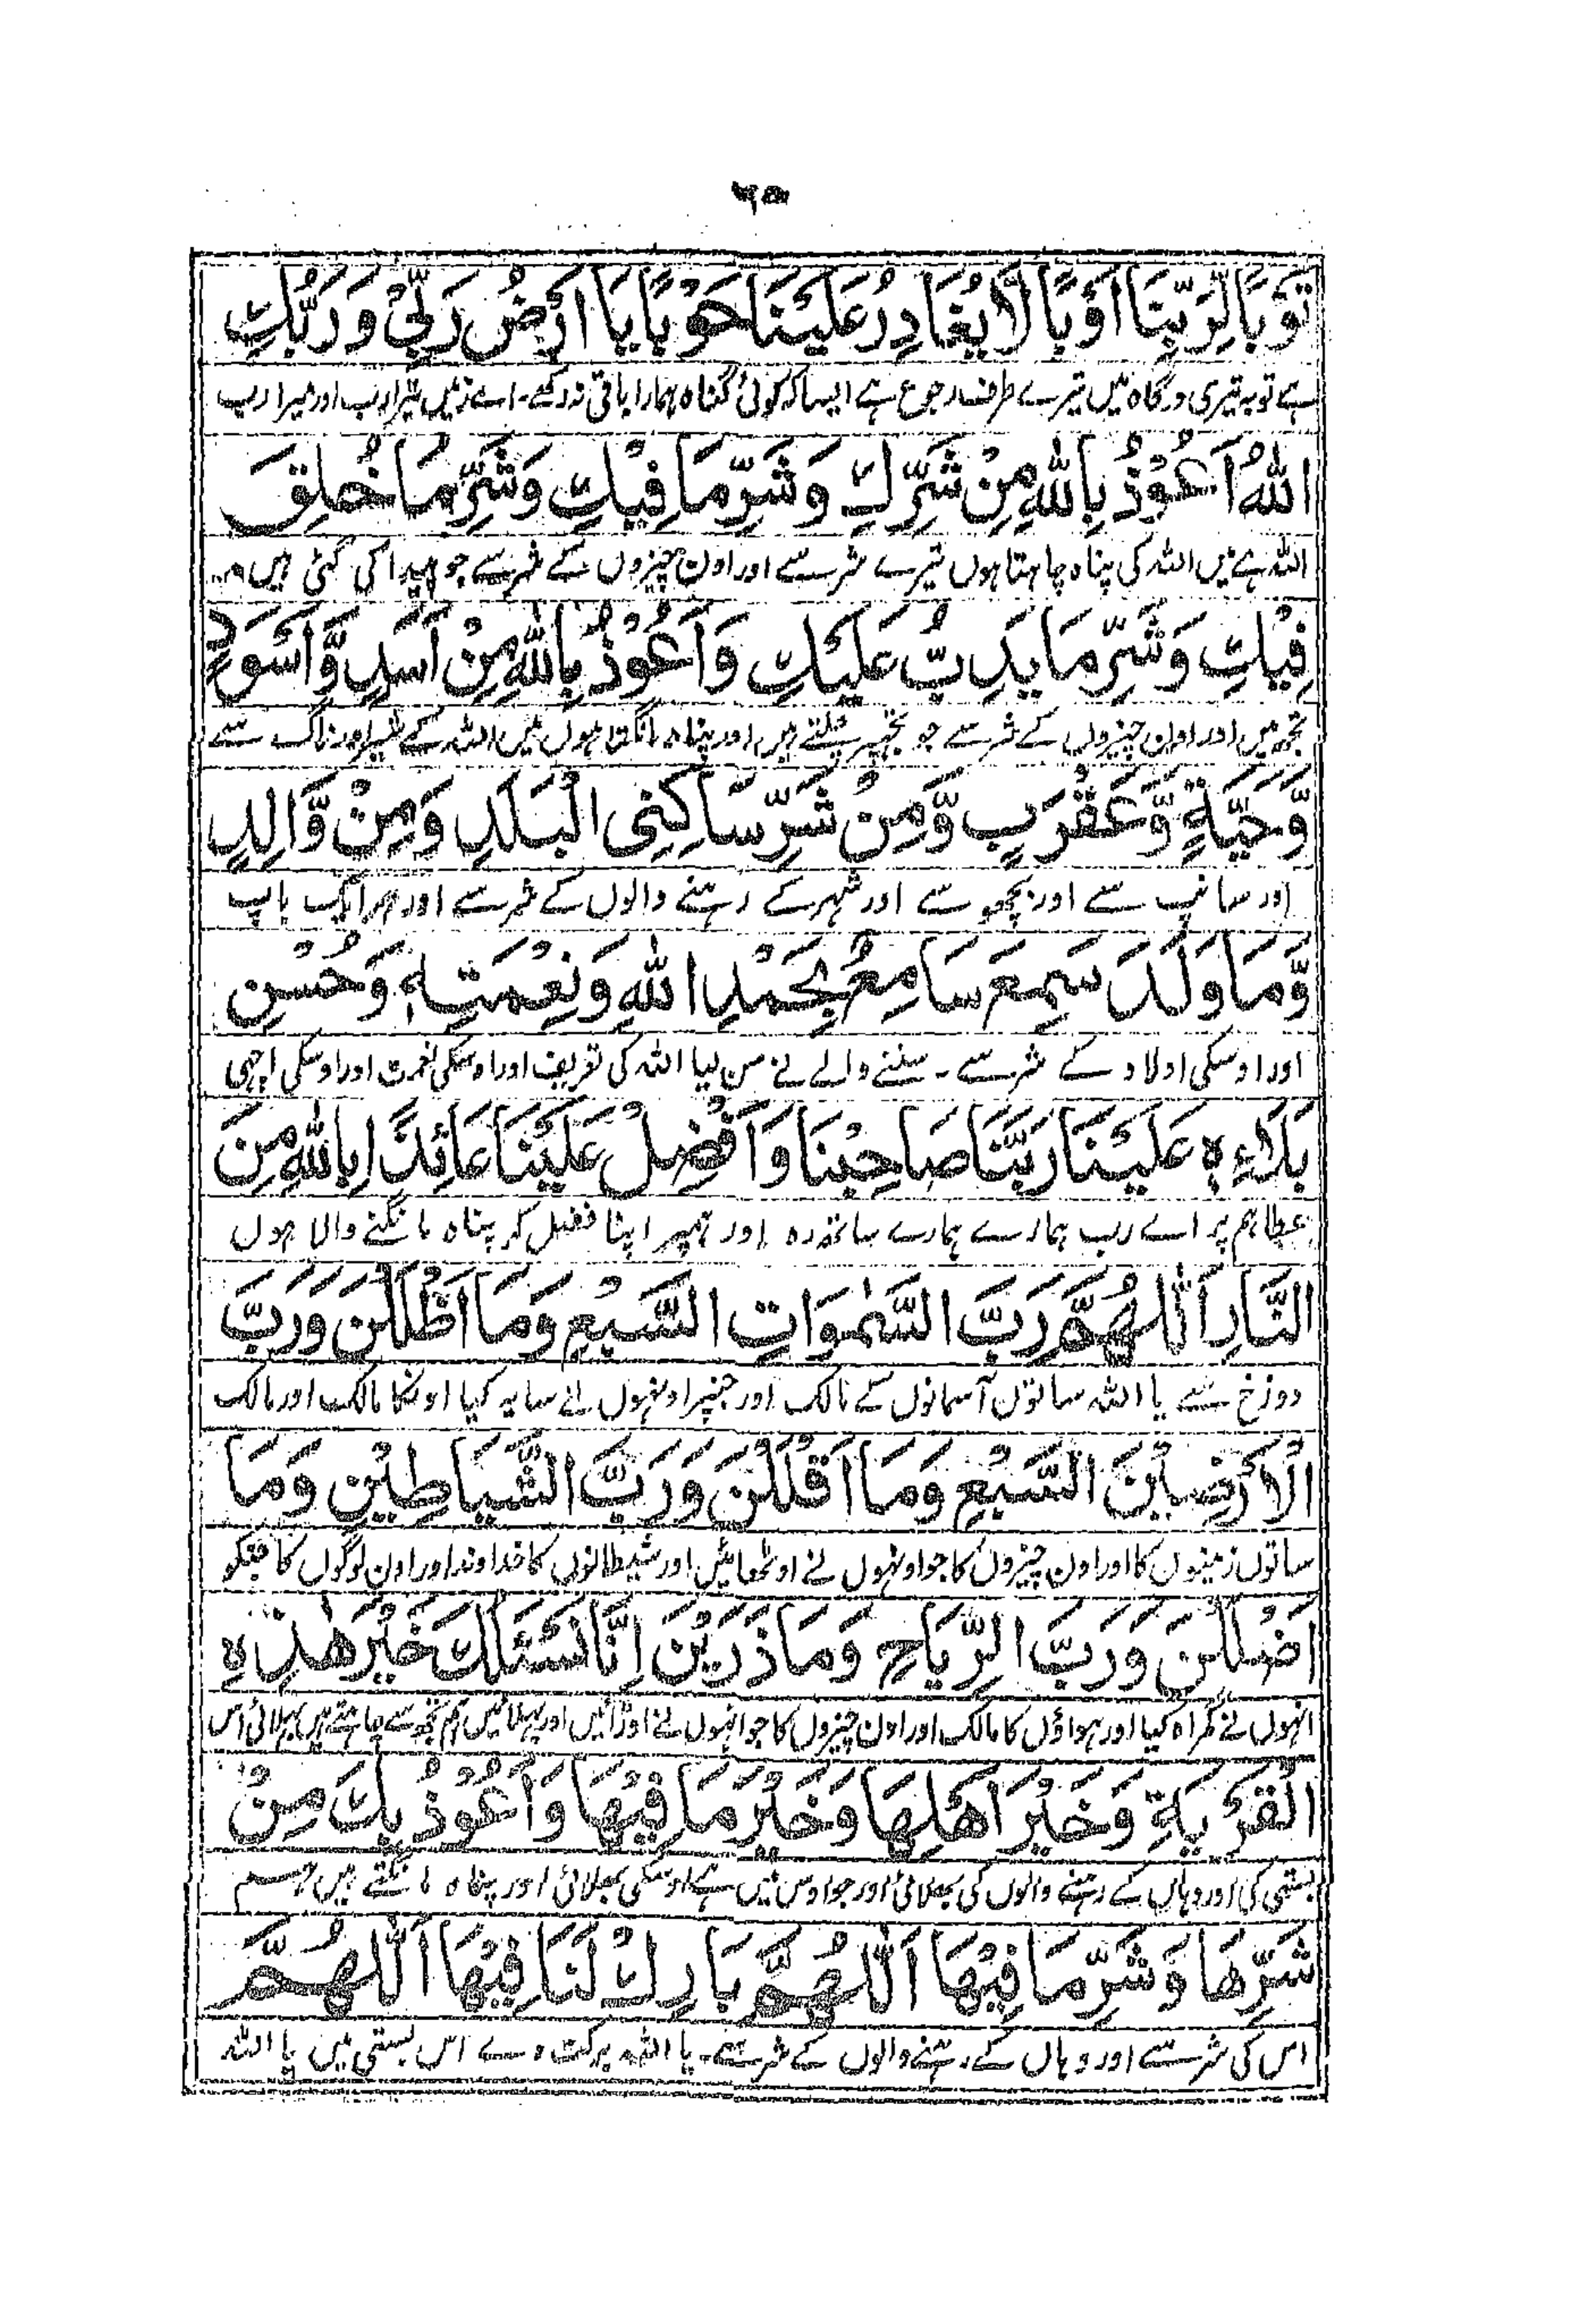 تَوْبًا لِّرَبِّنَا اَوْبًا لَّا یُغَادِرُ عَلَیْنَا حَوْبًا یَا اَرْضُ رَبِّیْ وَ رَبُّكِ
ہے توبہ تیری درگاہ میں تیرے طرف رجوع ہے ایسا کہ کوئی گناہ ہمارا باقی نہ رکھے۔ اے زمین تیرا رب اور میرا رب
اللهُ اَعُوْذُ بِاللهِ مِنْ شَرِّكِ وَشَرِّ مَا فِیْكِ وَشَرِّ مَا خُلِقَ
اللہ ہے میں اللہ کی پناہ چاہتا ہوں تیرے شر سے اور اون چیزوں کے شر سے جو پیدا کی گئی ہیں
فِیْكِ وَشَرِّ مَا یَدِبُّ عَلَیْكِ وَاَعُوْذُ بِاللهِ مِنْ اَسَدٍ وَّاَسْوَدٍ
تجھ میں اور اون چیزوں کے شر سے جو تجھپر چلتے ہیں اور پناہ مانگتا ہوں میں اللہ کے شیر اور ناگ سے
وَّحَیَّةٍ وَّعَقْرَبٍ وَّمِنْ شَرِّ سَاكِنِی الْبَلَدِ وَمِنْ وَّالِدٍ
اور سانپ سے اور بچھو سے اور شہر کے رہنے والوں کے شر سے اور ہر ایک باپ
وَّمَا وَلَدَ سَمِعَ سَامِعٌ بِحَمْدِ اللهِ وَنِعْمَتِهٖ وَحُسْنِ
اور اوسکی اولاد کے شر سے ۔ سننے والے نے سن لیا اللہ کی تعریف اور اوسکی نعمت اور اوسکی اچھی
بَلَاءِهٖ عَلَیْنَا رَبَّنَا صَاحِبْنَا وَاَفْضِلْ عَلَیْنَا عَائِذًا بِاللهِ مِنَ
عطا ہم پر اے رب ہمارے ہمارے ساتھ رہ اور ہمپر اپنا فضل کر پناہ مانگنے والا ہوں
النَّارِ اَللّٰهُمَّ رَبَّ السَّمٰوَاتِ السَّبْعِ وَمَا اَظْلَلْنَ وَرَبَّ
دوزخ سے یا اللہ ساتوں آسمانوں کے مالک اور جنپر اونھوں نے سایہ کیا اونکا مالک اور مالک
الْاَرَضِیْنَ السَّبْعِ وَمَا اَقْلَلْنَ وَرَبَّ الشَّیَاطِیْنِ وَمَا
ساتوں زمینوں کا اور اون چیزوں کا جو اونہوں نے اوٹھائیں اور شیطانوں کا خداوند اور اون لوگوں کا جنکو
اَضْلَلْنَ وَرَبَّ الرِّیَاحِ وَمَا ذَرَیْنَ اِنَّا نَسْئَلُكَ خَیْرَ هٰذِهِ
انہوں نے گمراہ کیا اور ہواؤں کا مالک اور اون چیزوں کا جو انہوں نے اوڑائیں اور پھیلائیں ہم تجھ سے چاہتے ہیں بھلائی اس
الْقَرْیَةِ وَخَیْرَ اَهْلِهَا وَخَیْرَ مَا فِیْهَا وَاَعُوْذُ بِكَ مِنْ
بستی کی اور وہاں کے رہنے والوں کی بھلائی اور جو اوس میں ہے اوسکی بھلائی اور پناہ مانگتے ہیں ہم
شَرِّهَا وَشَرِّ مَا فِیْهَا اَللّٰهُمَّ بَارِكْ لَنَا فِیْهَا اَللّٰهُمَّ
اس کی شر سے اور وہاں کے رہنے والوں کے شر سے۔ یا اللہ برکت دے اس بستی میں یا اللہ